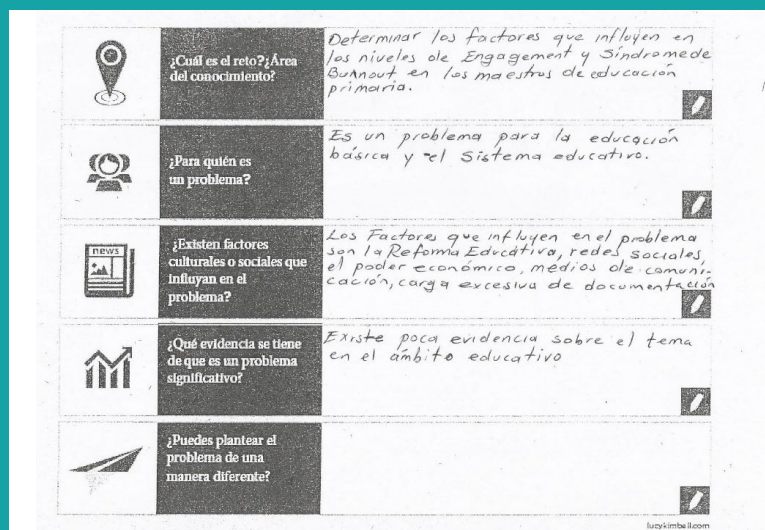 ¿Cuál es el reto?¿Área
del conocimiento?
Determinar los factores que influyen en
los niveles de Engagement y Síndromede
Burnout en los maestros de educación
primaria.
¿Para quién es
un problema?
Es un problema para la educación
básica y el Sistema educativo.
news
¿Existen factores
culturales o sociales que
influyan en el
problema?
Los Factores que influyen en el problema
son la Reforma Educativa, redes sociales,
el poder económico, medios de comuni-
cación, carga excesiva de documentación
¿Qué evidencia se tiene
de que es un problema
significativo?
Existe poca evidencia sobre el tema
en el ámbito educativo
¿Puedes plantear el
problema de una
manera diferente?
lucykimbell.com